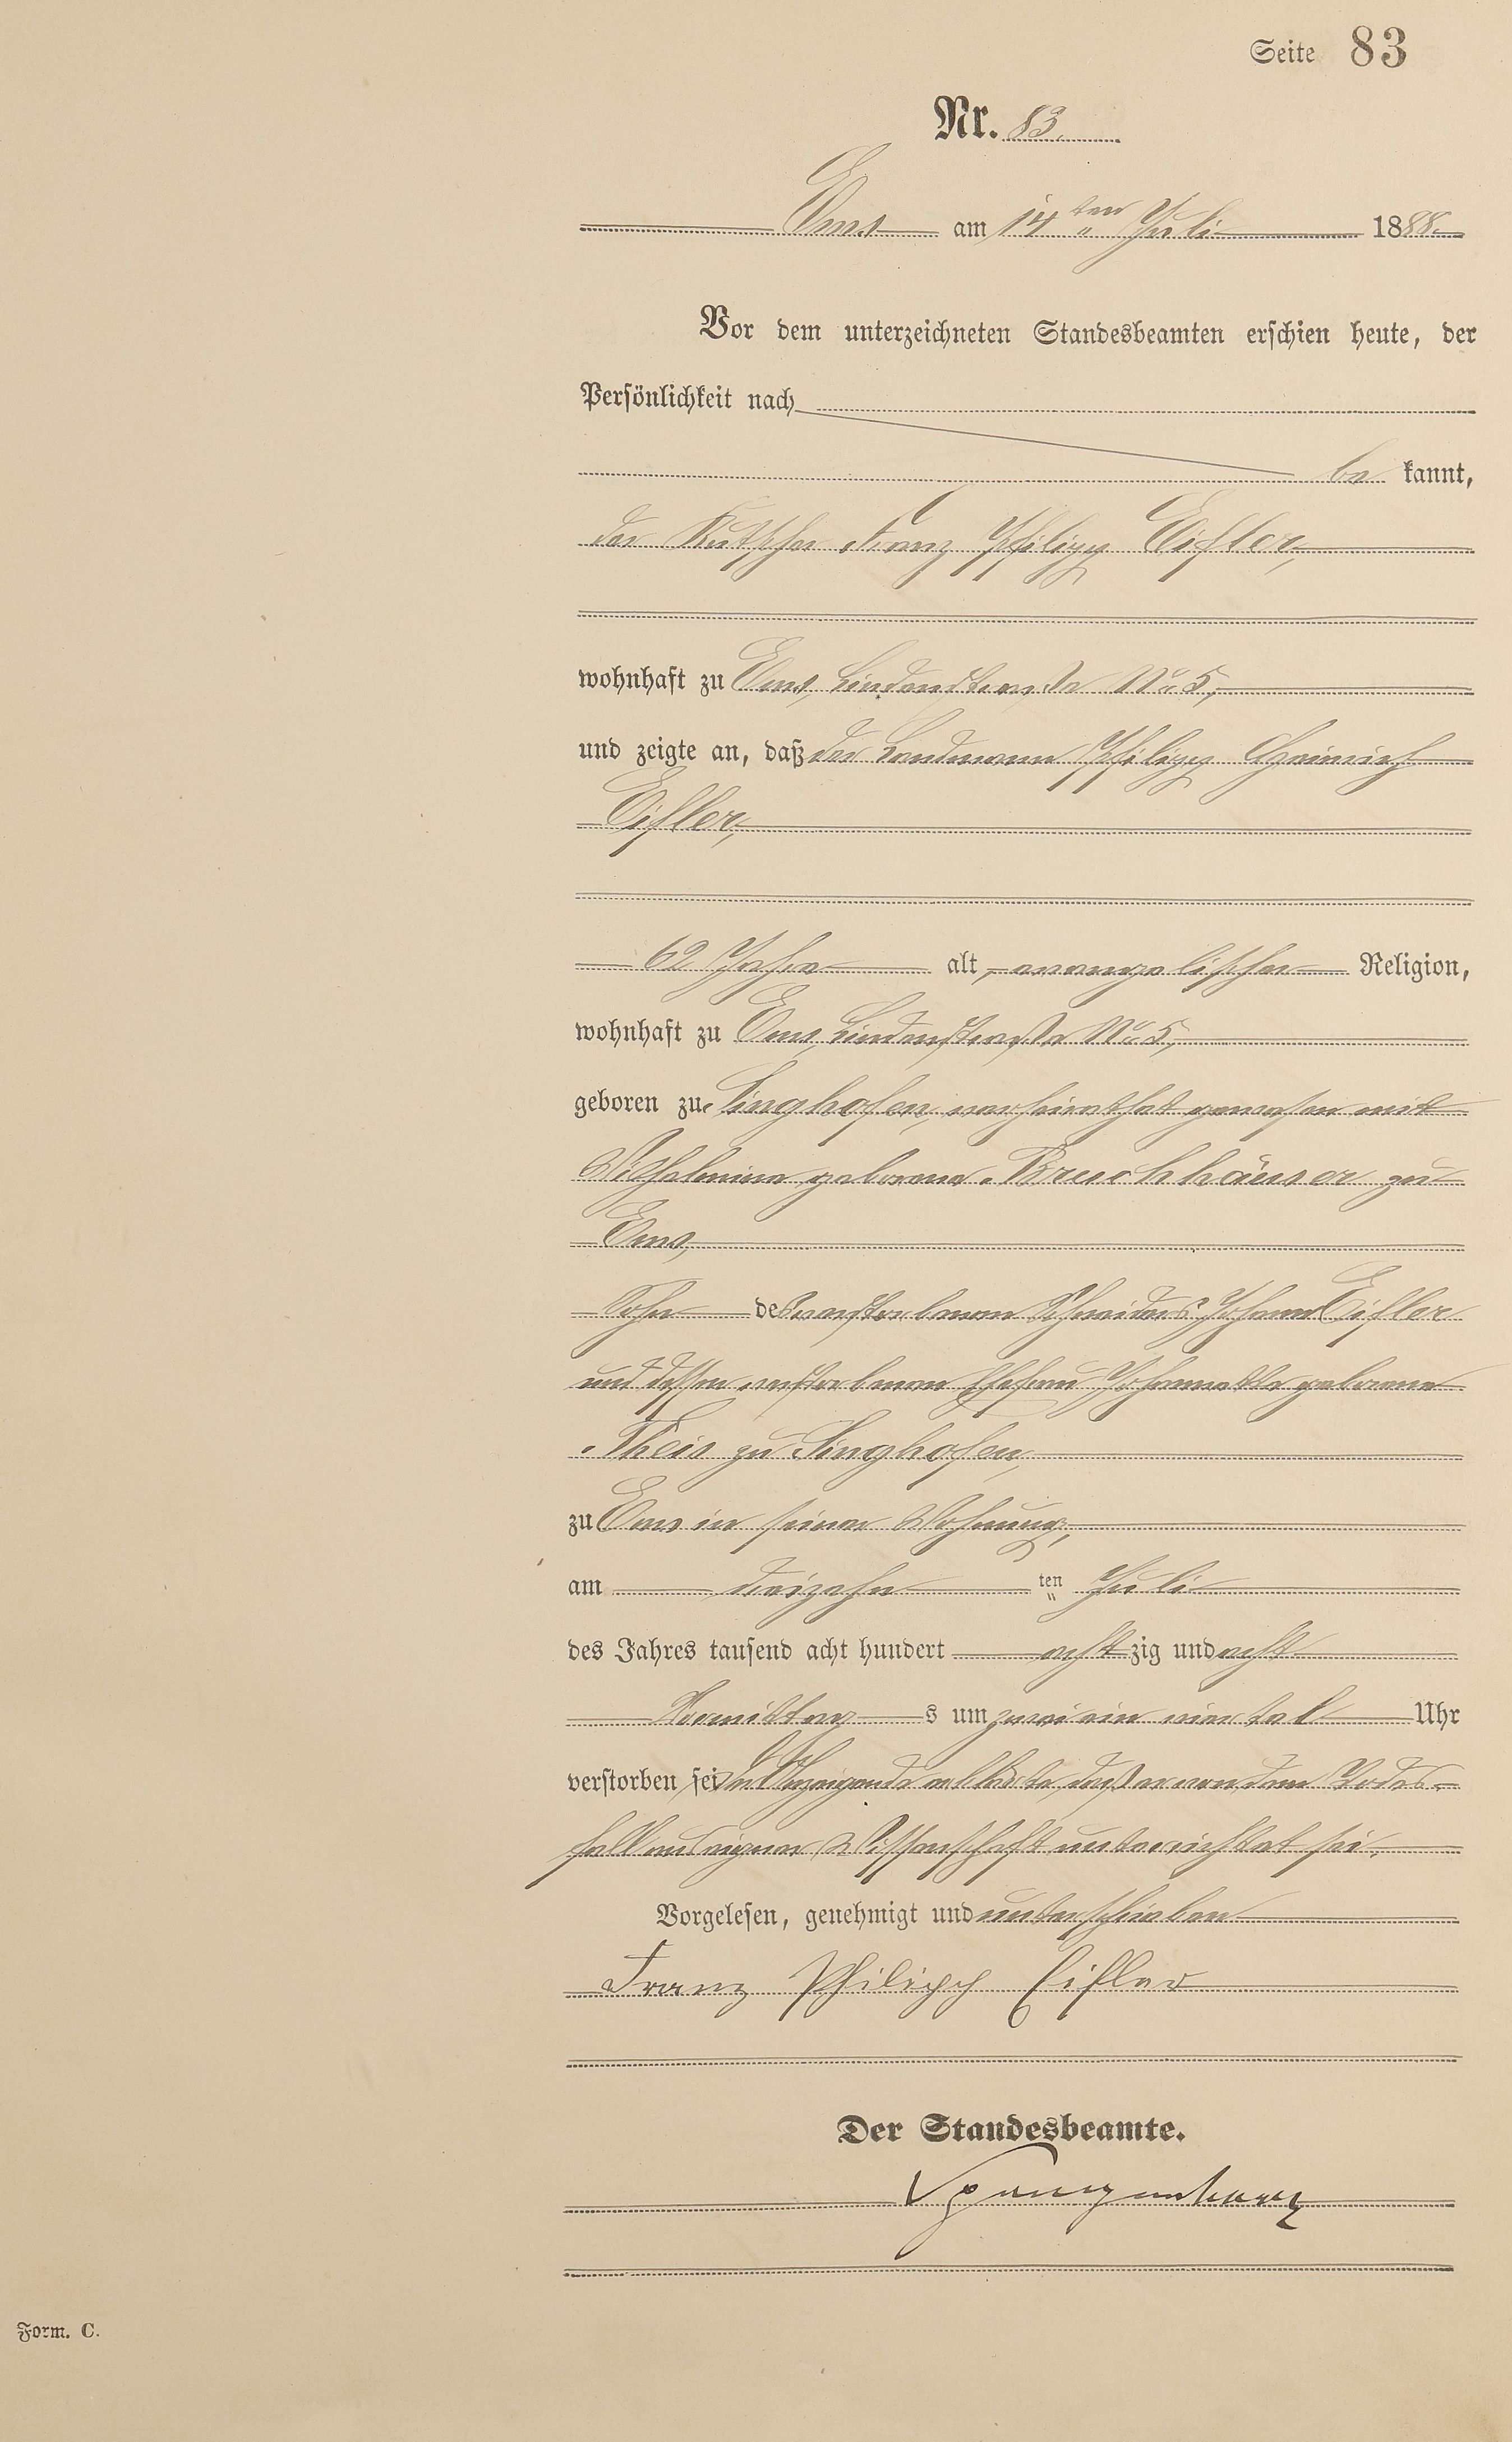 Seite 83
Nr. 83.
Ems am 14ten Juli 1888.
Vor dem unterzeichneten Standesbeamten erschien heute, der
Persönlichkeit nach
be kannt,
der Kutscher Franz Philipp Eifler,
wohnhaft zu Ems, Lindenstraße No 5,
und zeigte an, daß der Landmann Philipp Heinrich
Eifler,
62 Jahre alt, evangelischer Religion,
wohnhaft zu Ems, Lindenstraße No 5,
geboren zu Singhofen, verheirathet gewesen mit
Wilhelmine geborene Bruchhäuser zu
Ems,
Sohn des verstorbenen Schneiders Johann Eifler
und dessen verstorbenen Ehefrau Johannette geborene
Theis zu Singhofen,
zu Ems in seiner Wohnung,
am dreizehn ten Juli
des Jahres tausend acht hundert acht zig und acht
Vormittag s um zwei ein viertel Uhr
verstorben sei. Der Anzeigende erklärte, daß er von dem Todes-
fall aus eigener Wissenschaft unterrichtet sei.
Vorgelesen, genehmigt und unterschrieben
Franz Philipp Eifler
Der Standesbeamte.
Form. C.